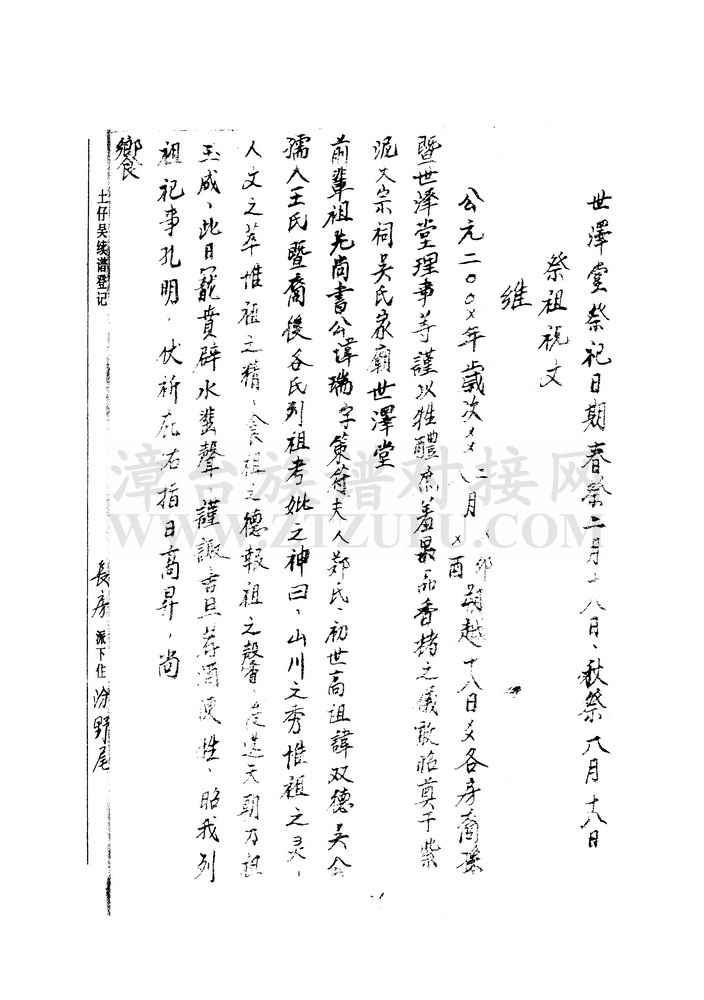 世澤堂祭祀日期春祭二月十八日、秋祭八月十八日
祭祖祝文
維
公元二〇〇×年歲次××二八月×卯酉朔越十八日×各房裔孫
暨世澤堂理事等謹以牲醴庶羞果品香楮之儀敢昭奠于紫
泥大宗祠吴氏家廟世澤堂
前輩祖先尚書公諱瑞字策府夫人鄭氏、初世高祖諱双德吴公
孺人王氏暨裔後各氏列祖考妣之神曰，山川之秀惟祖之灵，
人文之萃惟祖之精，食祖之德報祖之馨，天朝乃祖
玉成，此日寵賁辟水蜚聲，謹諏吉旦酒牲，昭我列
祖祀事孔明，伏祈庇右指日高昇，尚
饗
土仔吴续谱登记
長房派下住汾野尾
漳台族谱对接网
WWW.ZTZUPU.COM